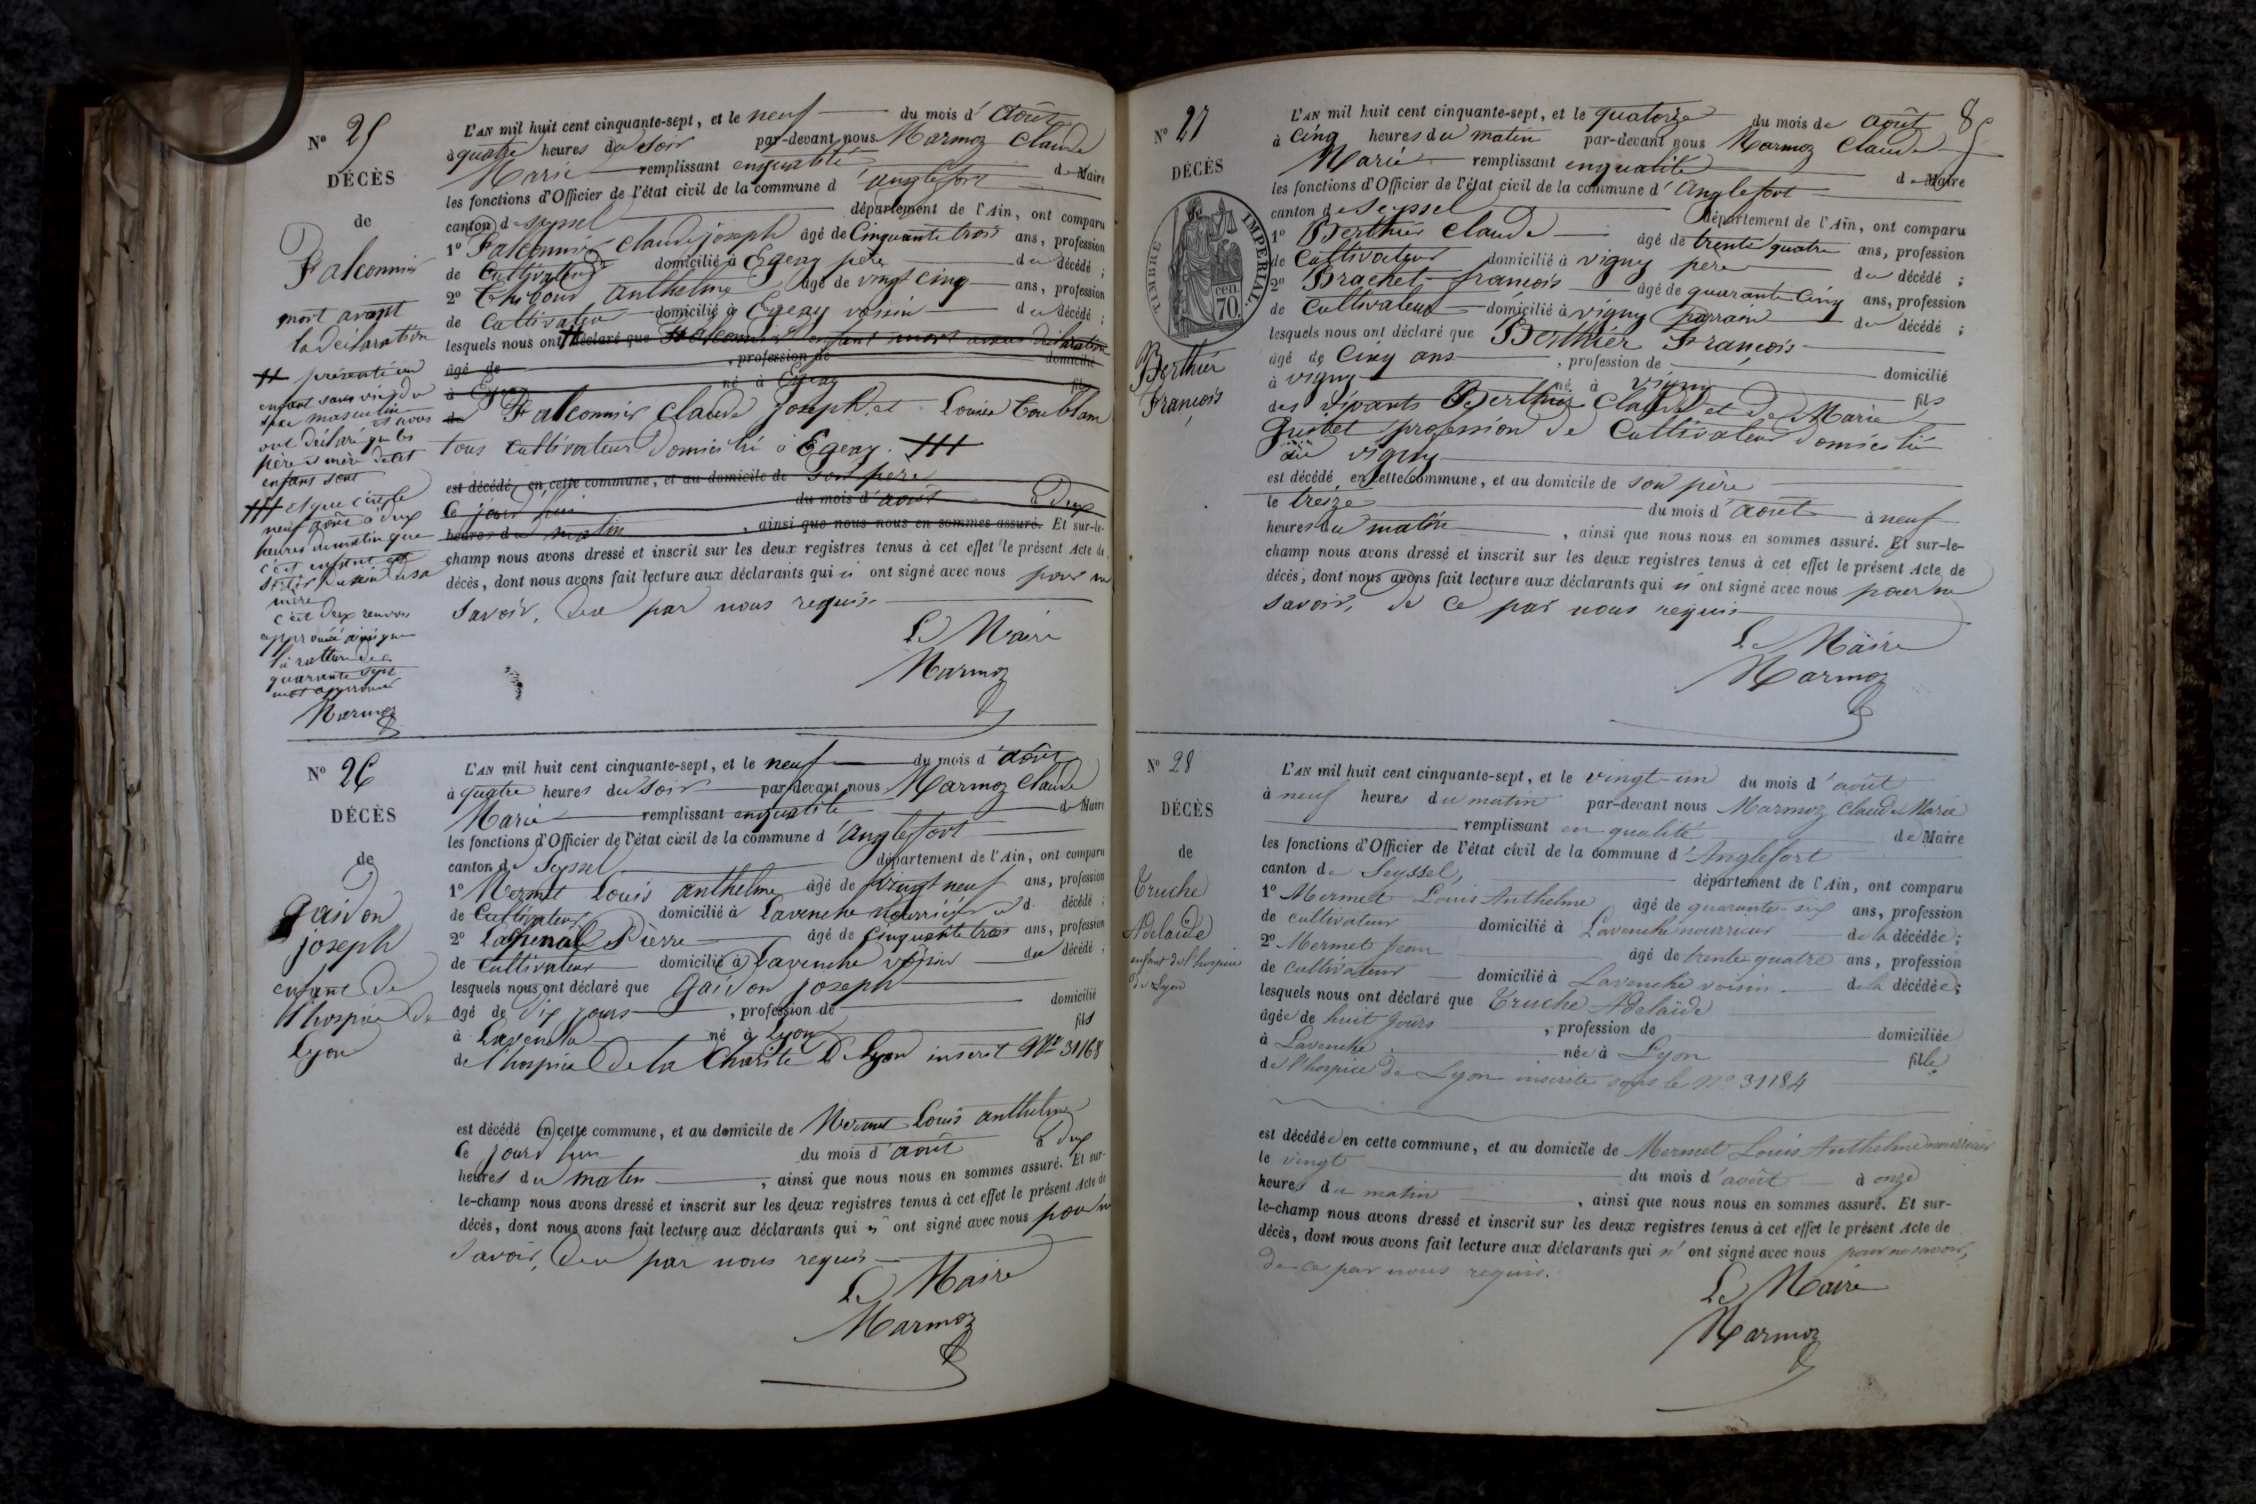 N° 25
DÉCÈS
de
Falconnier
mort avant
la déclaration
H présenté un
enfant sans vie du
sexe masculin
et nous
ont déclaré que les
père et mère de cet
enfant sont
HH et que c'est le
neuf août à deux
heures du matin que
cet enfant est
sorti du sein de sa
mère
cet deux renvois
approuvé ainsi que
la rature de
quarante sept
mots approuvé
Marmoz
L'AN mil huit cent cinquante-sept, et le neuf du mois d'Août
à quatre heures du soir par-devant nous Marmoz Claude
Marie remplissant en qualité de Maire
les fonctions d'Officier de l'état civil de la commune d'anglefort
canton de Seyssel département de l'Ain, ont comparu
1° Falconnier Claude joseph âgé de Cinquante trois ans, profession
de Cultivateur domicilié à Egeay père du décédé ;
2° Thiboud anthelme âgé de vingt cinq ans, profession
de Cultivateur domicilié à Egeay voisin du décédé ;
lesquels nous ont H déclaré que Falconnier enfant mort avant déclaration
âgé de , profession de domicilié
à Egeay né à Egeay fils
de Falconnier Claude joseph et Louise
tous cultivateur domicilié à Egeay. HH
est décédé, en cette commune, et au domicile de son père
le jourd'hui du mois d'août à deux
heures du matin , ainsi que nous nous en sommes assuré. Et sur-le-
champ nous avons dressé et inscrit sur les deux registres tenus à cet effet le présent Acte de
décès, dont nous avons fait lecture aux déclarants qui n'ont signé avec nous pour ne
Savoir, de ce par nous requis
Le Maire
Marmoz
N° 26
DÉCÈS
de
Gaidon
joseph
enfant de
l'hospice de
Lyon
L'AN mil huit cent cinquante-sept, et le neuf du mois d'août
à quatre heures du soir par-devant nous Marmoz Claude
Marie remplissant en qualité de Maire
les fonctions d'Officier de l'état civil de la commune d'anglefort
canton de Seyssel département de l'Ain, ont comparu
1° Mermet Louis anthelme âgé de vingt neuf ans, profession
de Cultivateur domicilié à Lavenche nourricier d. décédé ;
2° Laphenal Pierre âgé de Cinquante trois ans, profession
de Cultivateur domicilié à Lavenche voisin du décédé ;
lesquels nous ont déclaré que Gaidon joseph
âgé de dix jours , profession de domicilié
à Lavenche né à Lyon fils
de l'hospice de la Charité De Lyon inscrit N° 31168
est décédé en cette commune, et au domicile de Mermet Louis anthelme
le jourd'hui du mois d'août à deux
heures du matin , ainsi que nous nous en sommes assuré. Et sur-
le-champ nous avons dressé et inscrit sur les deux registres tenus à cet effet le présent Acte de
décès, dont nous avons fait lecture aux déclarants qui n'ont signé avec nous pour ne
Savoir, de ce par nous requis
Le Maire
Marmoz
85
N° 27
DÉCÈS
de
TIMBRE IMPÉRIAL.
cen.
70.
Berthier
François
L'AN mil huit cent cinquante-sept, et le quatorze du mois de août
à Cinq heures du matin par-devant nous Marmoz Claude
Marie remplissant en qualité de Maire
les fonctions d'Officier de l'état civil de la commune d'Anglefort
canton de Seyssel département de l'Ain, ont comparu
1° Berthier Claude âgé de trente quatre ans, profession
de Cultivateur domicilié à vigny père du décédé ;
2° Brachet françois âgé de quarante Cinq ans, profession
de Cultivateur domicilié à vigny parrain du décédé ;
lesquels nous ont déclaré que Berthier François
âgé de Cinq ans , profession de domicilié
à vigny né à vigny fils
des vivants Berthier Claude et De Marie
Guibet profession de Cultivateur domicilié
au vigny
est décédé en cette commune, et au domicile de son père
le treize du mois d'août à neuf
heures du matin , ainsi que nous nous en sommes assuré. Et sur-le-
champ nous avons dressé et inscrit sur les deux registres tenus à cet effet le présent Acte de
décès, dont nous avons fait lecture aux déclarants qui n'ont signé avec nous pour ne
savoir, de ce par nous requis
Le Maire
Marmoz
N° 28
DÉCÈS
de
Truche
Adelaïde
enfant de l'hospice
de Lyon
L'AN mil huit cent cinquante-sept, et le vingt-un du mois d'août
à neuf heures du matin par-devant nous Marmoz Claude Marie
remplissant en qualité de Maire
les fonctions d'Officier de l'état civil de la commune d'Anglefort
canton de Seyssel, département de l'Ain, ont comparu
1° Mermet Louis Anthelme âgé de quarante-six ans, profession
de cultivateur domicilié à Lavenche nourricier de la décédée ;
2° Mermet Jean âgé de trente quatre ans, profession
de cultivateur domicilié à Lavenche voisin de la décédée ;
lesquels nous ont déclaré que Truche Adelaïde
âgée de huit jours , profession de domiciliée
à Lavenche née à Lyon fille
de l'hospice de Lyon inscrite sous le N° 31184
est décédée en cette commune, et au domicile de Mermet Louis Anthelme nourricier
le vingt du mois d'août à onze
heures du matin , ainsi que nous nous en sommes assuré. Et sur-
le-champ nous avons dressé et inscrit sur les deux registres tenus à cet effet le présent Acte de
décès, dont nous avons fait lecture aux déclarants qui n'ont signé avec nous pour ne savoir,
de ce par nous requis.
Le Maire
Marmoz